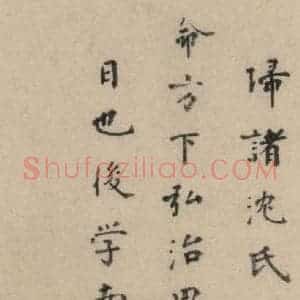 帰諸沈氏
命方下弘治
日也後学
Shufaziliao.com